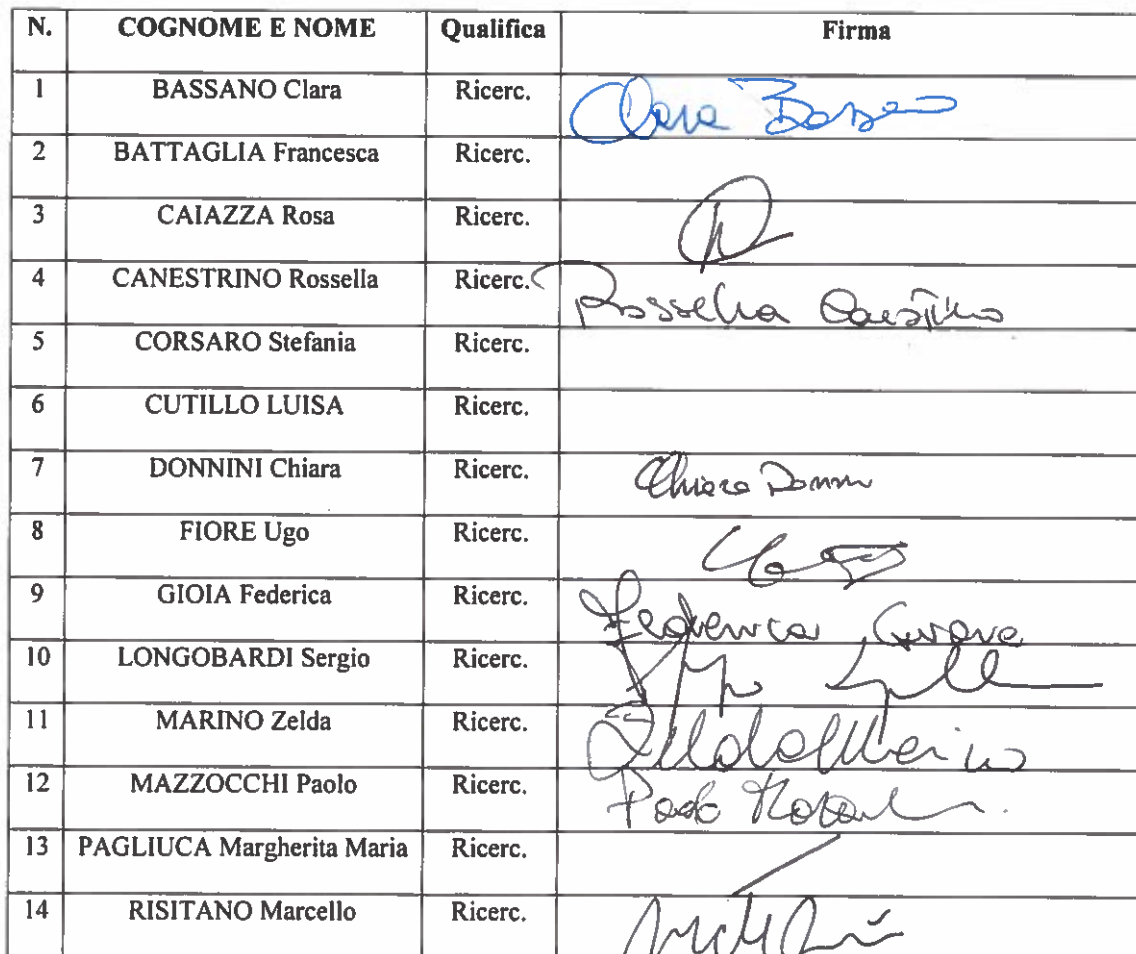 N. COGNOME E NOME Qualifica Firma
1 BASSANO Clara Ricerc. Clara Bassano
2 BATTAGLIA Francesca Ricerc.
3 CAIAZZA Rosa Ricerc.
4 CANESTRINO Rossella Ricerc. Rossella Canestrino
5 CORSARO Stefania Ricerc.
6 CUTILLO LUISA Ricerc.
7 DONNINI Chiara Ricerc. Chiara Donnini
8 FIORE Ugo Ricerc.
9 GIOIA Federica Ricerc. Federica
10 LONGOBARDI Sergio Ricerc.
11 MARINO Zelda Ricerc. Zelda Marino
12 MAZZOCCHI Paolo Ricerc. Paolo
13 PAGLIUCA Margherita Maria Ricerc.
14 RISITANO Marcello Ricerc.